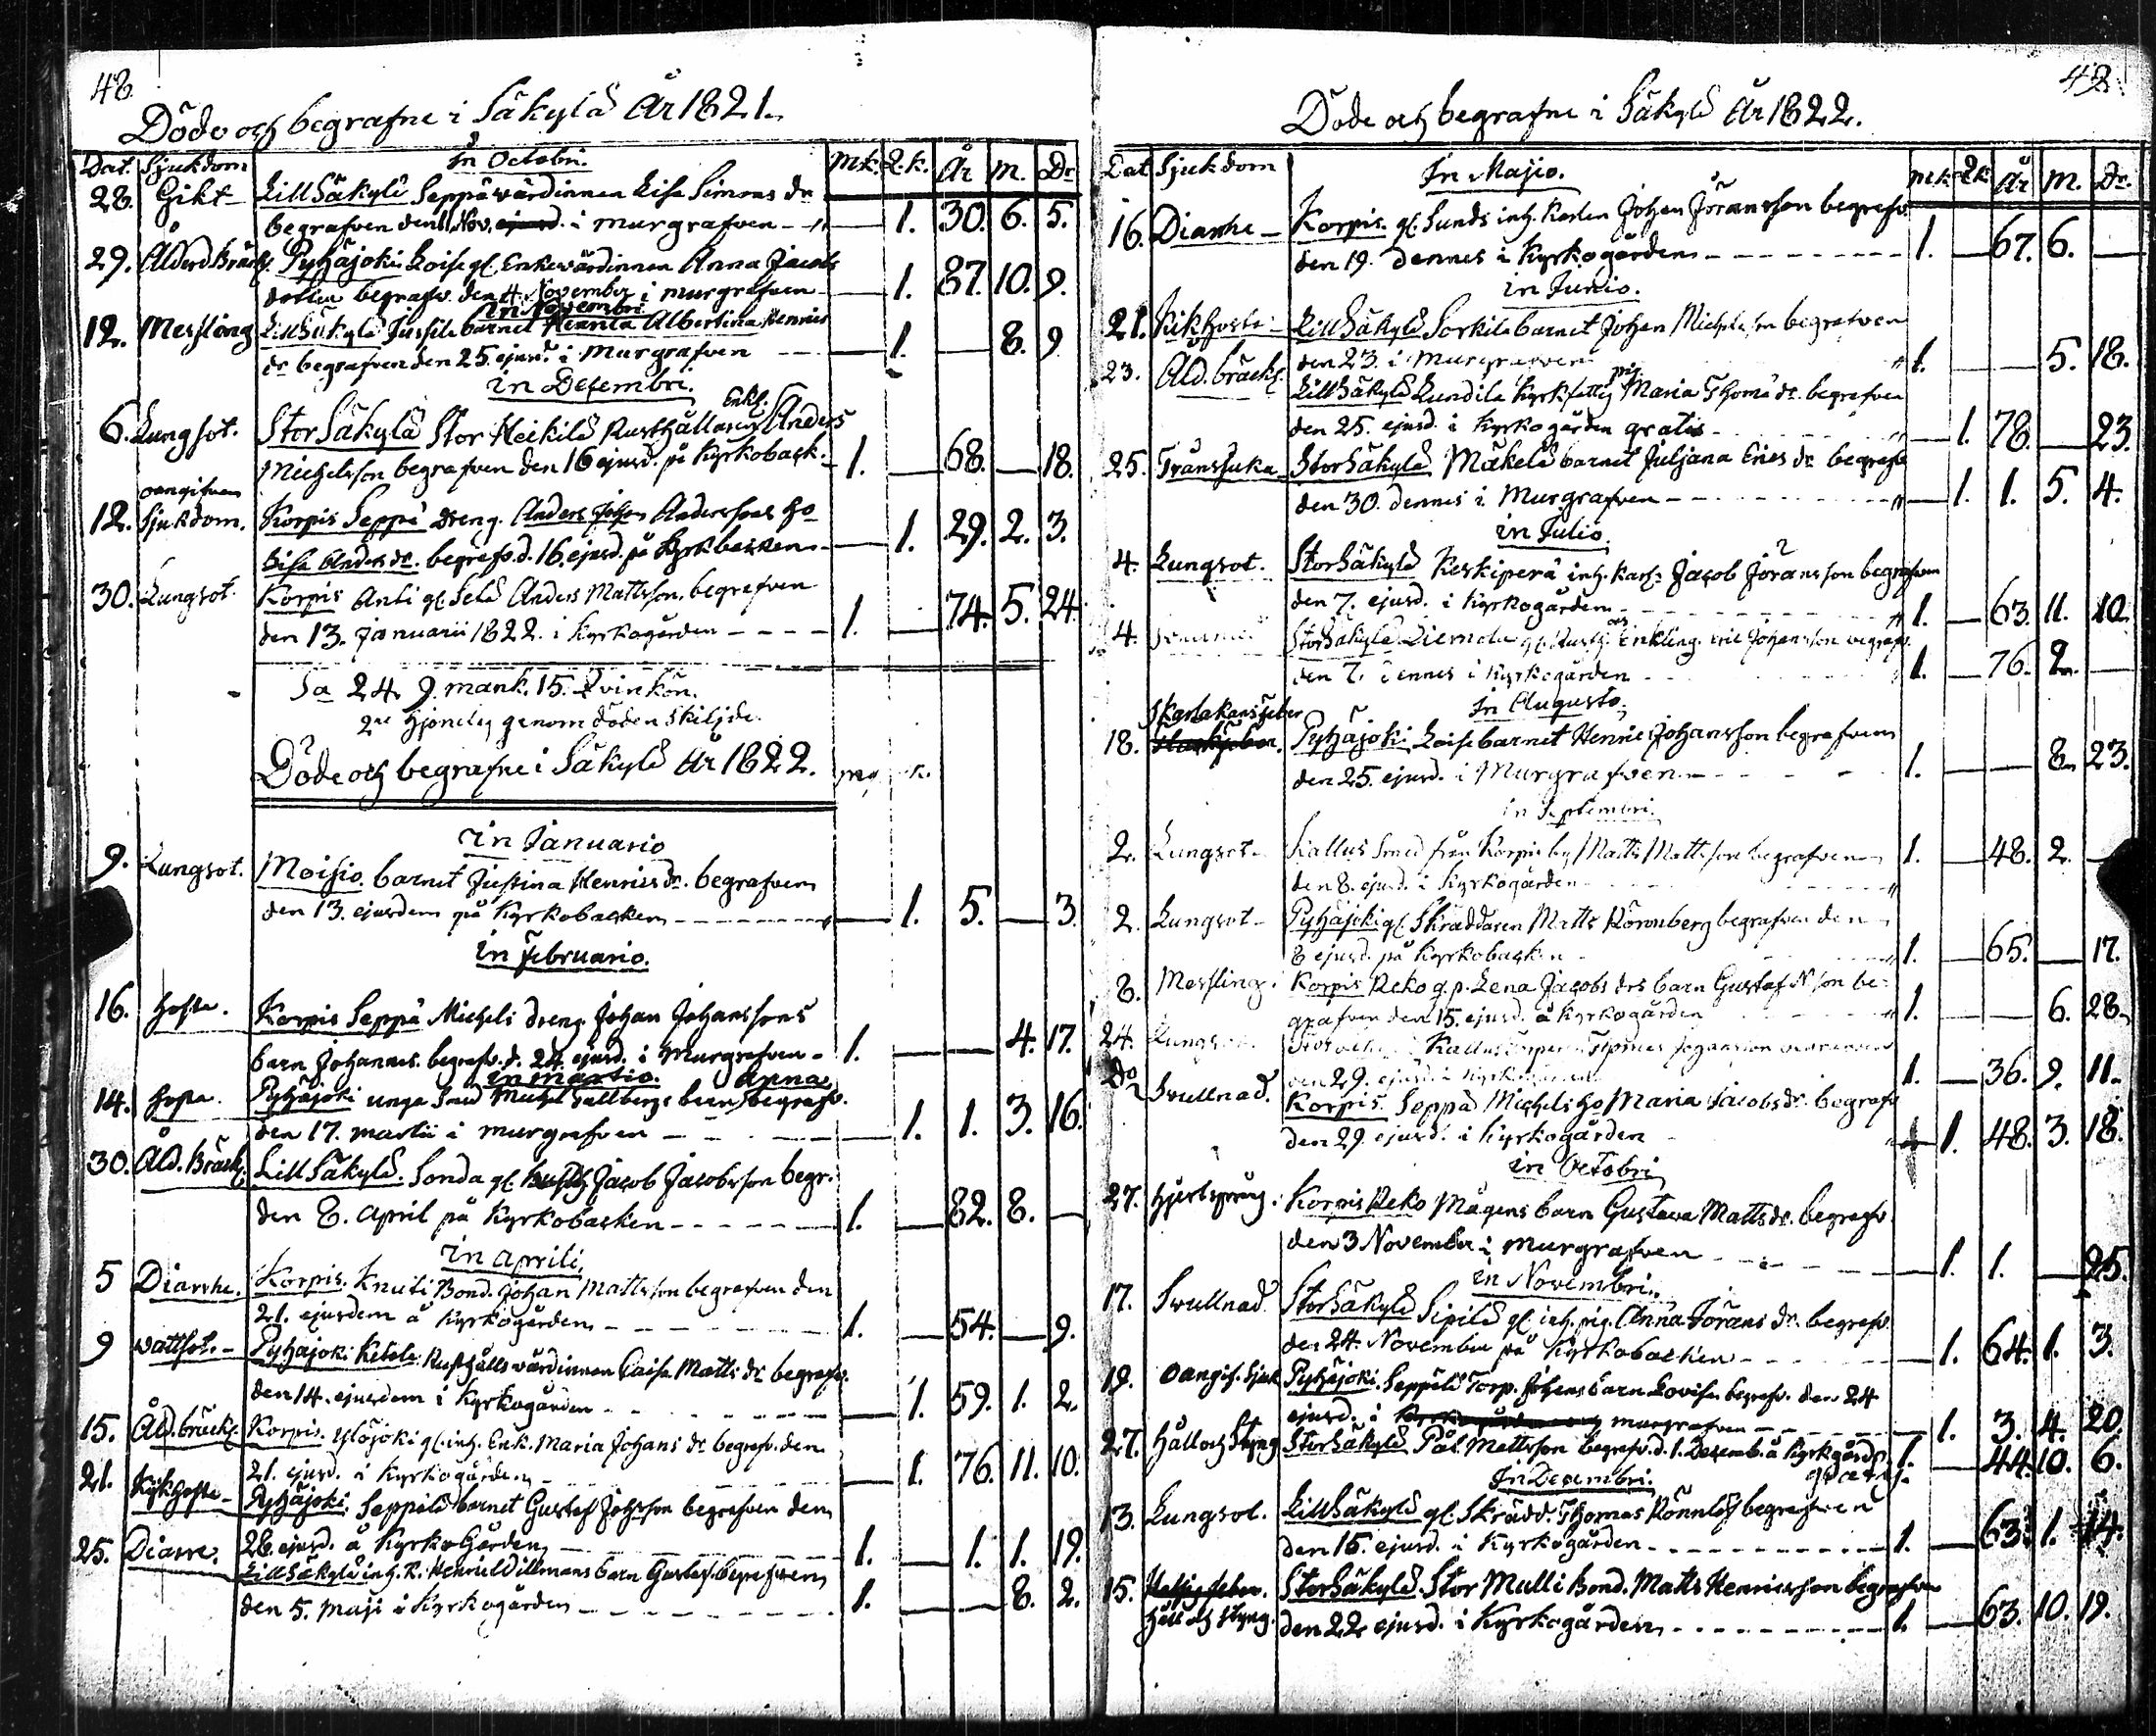 48.
Döde och begrafne i Säkylä År 1821.
Dat. Sjukdom In Octobri. Mk. Q.k. År M. Dr
28. Gikt Lill Säkylä Seppä wärdinnan Lisa Simons dr
begrafven den 1 Nov. ejusd. i murgrafven 1. 30. 6. 5.
29. Ålderd. Bräckl. Pyhäjoki Loise gl. Enkewärdinnan Anna Jacobs
dotter begrafv. den 4. November i murgrafven 1. 87. 10. 9.
in Novembri
12. Messling Lill Säkylä Jussila barnet Henrica Albertina Henrics
dr begrafven den 25. ejusd. i Murgrafven 1. 8. 9
in Desembri.
Enkl.
6. Lungsot. Stor Säkylä Stor Heikilä Rusthållaren Anders
Michelsson begrafven den 16 ejusd. på Kyrkoback. 1. 68. 18.
oangifven
12. Sjukdom. Korpis Seppä Dreng. Anders Johan Anderssons ho
Lisa Anders dr. begrafv. d. 16. ejusd. på Kyrkbacken 1. 29. 2. 3.
30. Lungsot. Korpis Anti gl. Anders Mattsson, begrafven
den 13. Januarii 1822. i Kyrkogården 1. 74. 5. 24.
Sa 24. 9. mank. 15. Qvinkön.
2ne Hjonelag genom döden skiljde.
Döde och begrafne i Säkylä År 1822.
in Januario
9. Lungsot. Moisio. barnet Justina Henrics dr. begrafven
den 13. ejusdem på Kyrkobacken 1. 5. 3.
in Februario.
16. Hosta. Korpis Seppä Michels Dreng Johan Johanssons
barn Johannes. begrafv. d. 24. ejusd. i Murgrafven 1. 4. 17.
in Martio. Anna
14. Hosta. Pyhäjoki unga Smed Michel Hallbergs barn begrafv.
den 17. martii i murgrafven 1. 1. 3. 16.
30. Åld. Bräckl. Lill Säkylä. Sonda gl. Jacob Jacobsson begr.
den 8. April på Kyrkobacken 1. 82. 8.
in Aprili.
5 Diarrhe. Korpis. Knuti Bond. Johan Mattsson begrafven den
21. ejusdem å Kyrkogården 1. 54. 9.
9 Wattsot. Pyhäjoki Rusthålls wärdinnan Caisa Matts dr begrafv.
den 14. ejusdem i Kyrkogården 1. 59. 1. 2.
15. Åld. bräckl. Korpis. Ylöjoki gl. inh. Enk. Maria Johans dr begrafv. den
21. ejusd. i Kyrkogården 1. 76. 11. 10.
21. Kykhosta Pyhäjoki Seppälä barnet Gustaf Johsson begrafven den
28. ejusd. å Kyrko Gården 1. 1. 1. 19.
25. Diarre. Lill Säkylä inh. K. Henric Dillmans barn Gustaf. begrafven
den 5. Maji i Kyrkogården 1. 8. 2.
49.
Döde och begrafne i Säkylä År 1822.
Dat Sjukdom In Majio. Mk. Qk. År M. Dr.
16. Diarrhe Korpis. gl. Sunds inh. Karlen Johan Jöransson begrafv.
den 19. dennes i Kyrkogården 1. 67. 6.
in Junio.
21. Kikhosta Lill Säkylä Sorkila barnet Johan Michelsson begrafven
den 23. i Murgrafven 1. 5. 18.
pig.
23. Åld. bräckl. Lill Säkylä Lundila Kyrk fattig Maria Thomæ dr. begrafven
den 25. ejusd. i Kyrkogården gratis 1. 78. 23.
25. Trånsjuka Stor Säkylä Mäkelä barnet Juljana Erics dr. begrafv
den 30. dennes i Murgrafven 1. 1. 5. 4.
in Julio.
4. Lungsot. Stor Säkylä Keskiperä inh. Karl: Jacob Jöransson begrafven
den 7. ejusd. i Kyrkogården 1. 63. 11. 10.
4. Stor Säkylä gl. Rusth. och Enkling Eric Johansson begrafv.
den 7. dennes i Kyrkogården 1. 76. 2.
Skarlakansfeber In Augusto.
18. Pyhäjoki. Loise barnet Henric Johansson begrafven
den 25. ejusd. i Murgrafven 1. 8. 23.
in Septembri.
2. Lungsot Kallus Smed från Korpis by Matts Mattsson begrafven 1. 48. 2.
den 8. ejusd. i Kyrkogården
2. Lungsot Pyhäjoki gl. Skräddaren Matts Rönnberg begrafven den
8 ejusd. på Kyrkobacken 1. 65. 17.
8. Messling. Korpis Reko q.p. Lena Jacobs drs barn Gustaf N. son be-
grafven den 15. ejusd. å Kyrkogården 1. 6. 28.
24. Lungsot Thomas Johansson
den 29. ejusd. i Kyrkogården 1. 36. 9. 11.
Do Svullnad. Korpis. Seppä Michels ho Maria Jacobs dr. begrafv
den 29. ejusd. i Kyrkogården 1. 48. 3. 18.
in Octobri
27. Hjertsprång. Korpis Reko Mågens barn Gustava Matts dr. begrafv.
den 3 November i murgrafven 1. 1. 25.
in Novembri.
17. Svullnad. Stor Säkylä Sipilä gl. inh. pig. Anna Jörans dr. begrafv.
den 24. November på Kyrkobacken 1. 64. 1. 3.
19. Oangif. Sjuk Pyhäjoki. Seppälä Torp. Johans barn Lovisa begrafv. den 24
ejusd. i murgrafven 1. 3. 4. 20.
27. Håll och Styng Stor Säkylä Pål. Mattsson begrafv. d. 1. Desemb. å Kyrkgård 1. 44. 10. 6.
In Desembri. gratis.
13. Lungsot. Lill Säkylä gl. Skrädd. Thomas Rönnlöf begrafven
den 15. ejusd. i Kyrkogården 1. 63. 1. 14.
15. Hetsig feber. Stor Säkylä. Stor Mulli Bond. Matts Henricsson begrafven
Håll och styng. den 22 ejusd. i Kyrkogården 1. 63. 10. 19.